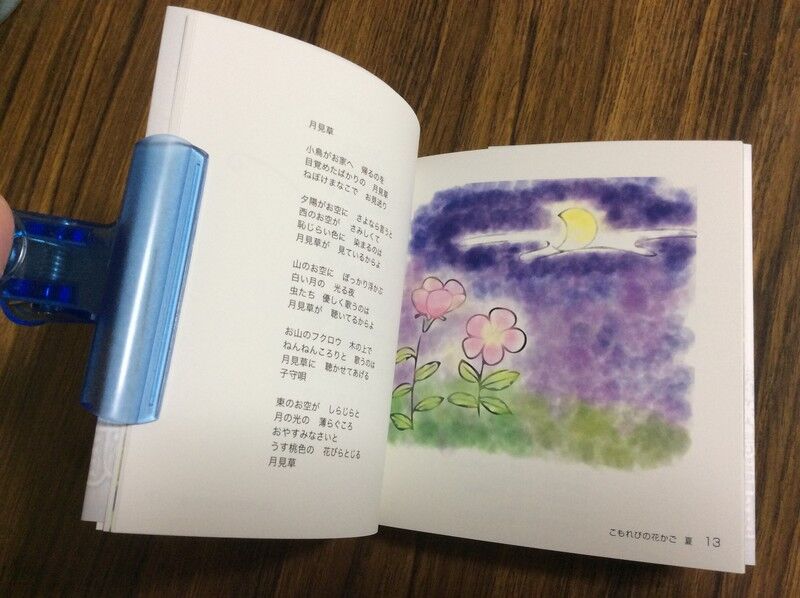 月見草
小鳥がお家へ　帰るのを
目覚めたばかりの　月見草
ねぼけまなこで　お見送り
夕陽がお空に　さよなら言うと
西のお空が　さみしくて
恥じらい色に　染まるのは
月見草が　見ているからよ
山のお空に　ぽっかり浮かぶ
白い月の　光る夜
虫たち　優しく歌うのは
月見草が　聴いてるからよ
お山のフクロウ　木の上で
ねんねんころりと　歌うのは
月見草に　聴かせてあげる
子守唄
東のお空が　しらじらと
月の光の　薄らぐころ
おやすみなさいと
うす桃色の　花びらとじる
月見草
こもれびの花かご　夏　13